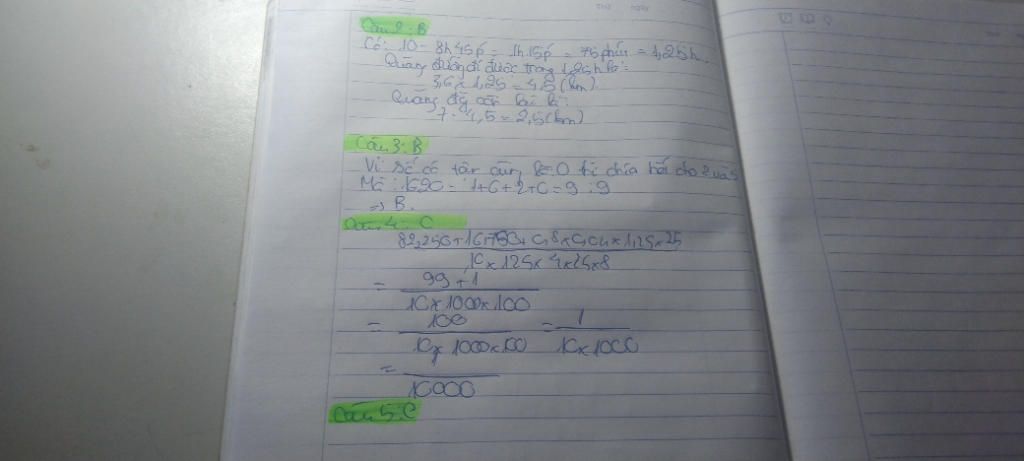 Câu 2: B
Có: 10 - 8h45p = 1h15p = 75phút = 1,25h.
Quãng đường đi được trong 1,25h là:
3,6 x 1,25 = 4,5 (km)
Quãng đg còn lại là:
7 - 4,5 = 2,5 (km)
Câu 3: B
Vì số có tận cùng là 0 thì chia hết cho 2 và 5
Mà: 1620 = 1+6+2+0 = 9 : 9
=> B.
Câu 4: C
82,250 + 16,750 + 0,8 x 0,04 x 1,25 x 25
10 x 125 x 4 x 25 x 8
= 99 + 1
10 x 1000 x 100
= 100 = 1
10 x 1000 x 100 10 x 1000
=
10000
Câu 5: C